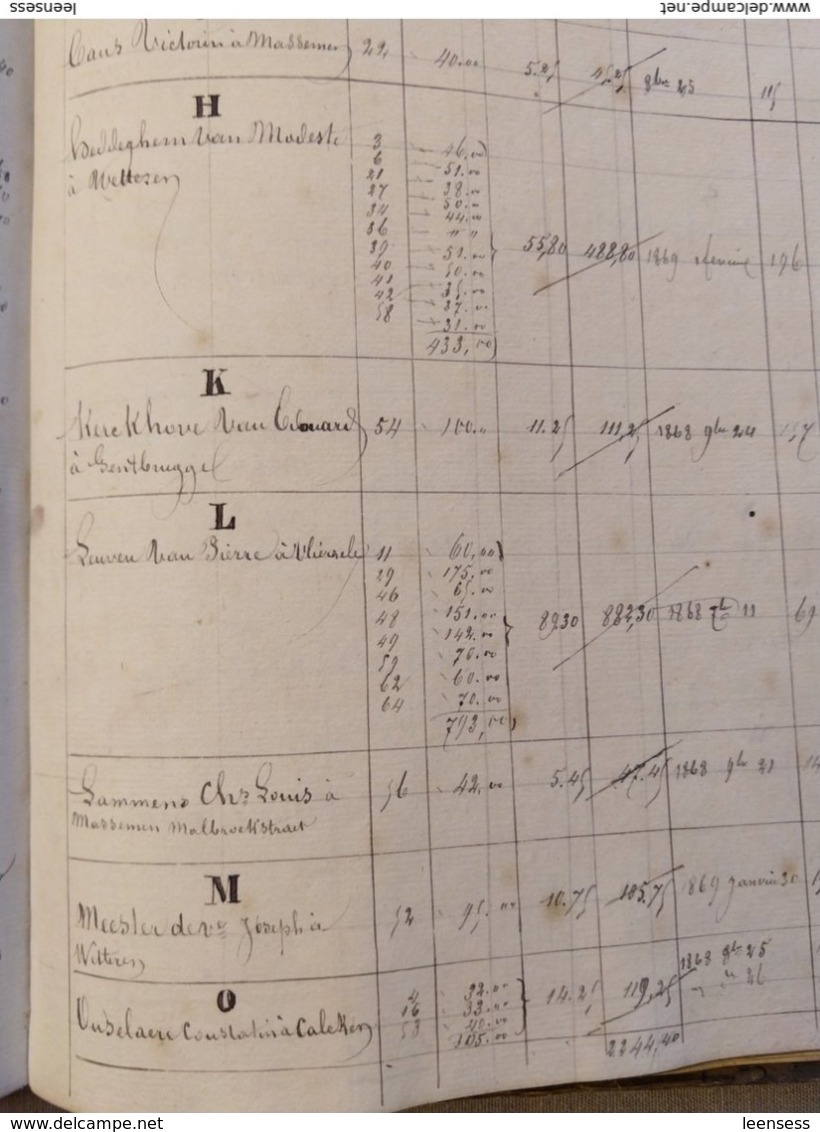 www.delcampe.net leensess
Caus Victorin à Massemen 22, 40.00 5.25 45,25 8bre 25 115
H
Heddeghem Van Modeste
à Wetteren
3 46,00
6 51.00
21 38.00
27 50.00
34 44.00
36 " "
39 51.00
40 50.00
41 35.00
42 37.00
58 31.00
433,00 55,80 488,80 1869 196
K
Kerckhove Van Edouard 54 100.. 11.25 111,25 1868 9bre 24 157
à Gentbrugge
L
Leuven Van Pierre à Vlierzele 11 60,00
29 175,00
46 65.00
48 151.00
49 142.00
59 70.00
62 60.00
64 70.00
793,00 89.30 882,30 1868 11 69
Lammens Chs Louis à 56 42.00 5.45 47.45 1868 9bre 21 14
Massemen Malbroekstraet
M
Meester de ve Joseph à 52 95.00 10.75 105.75 1869 Janvier 30
Wetteren
O
Ouselaere Constatin à Calcken
4 32.00
16 33.00
53 40.00
105.00 14.25 119,25 1868 9bre 25
" " 26
2244,40
leensess
www.delcampe.net